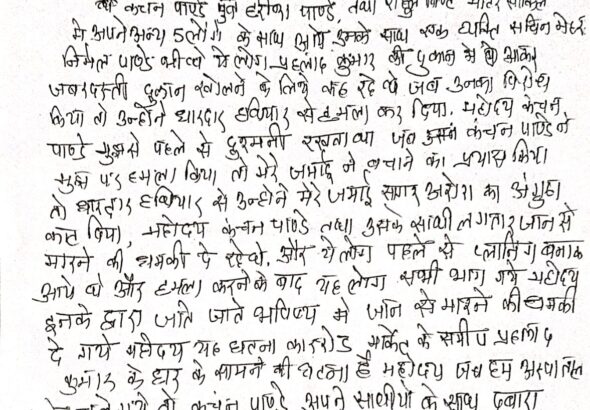 कंचन पाण्डे पुत्र हरीका पाण्डे, तथा राहुल
मे अपने अन्य 5 लोग के साथ आये इनके साथ एक व्यक्ति सचिन मेहर
निर्मल पाण्डे भी थे ये लोग प्रहलाद कुमार की दुकान मे आकर
जबरदस्ती दुकान खोलने के लिये कह रहे थे जब उनका विरोध
किया तो उन्होंने धारदार हथियार से हमला कर दिया. महोदय कंचन
पाण्डे मुझसे पहले से दुश्मनी रखता था जब कंचन पाण्डे ने
मुझ पर हमला किया तो मेरे जमाई ने बचाने का प्रयास किया
तो धारदार हथियार से उन्होने मेरे जमाई सागर अरोरा का अंगुठा
काट दिया, महोदय कंचन पाण्डे तथा उसके साथी लगातार जान से
मारने की धमकी दे रहे थे. और ये लोग पहले से प्लानिंग बनाकर
आये थे और हमला करने के बाद यह लोग सभी भाग गये महोदय
इनके द्वारा जाते जाते भविष्य मे जान से मारने की धमकी
दे गये महोदय यह घटना काररोड मार्केट के समीप प्रहलाद
कुमार के घर के सामने की घटना है महोदय जब हम अस्पताल
कंचन पाण्डे अपने साथीयो के साथ दुबारा